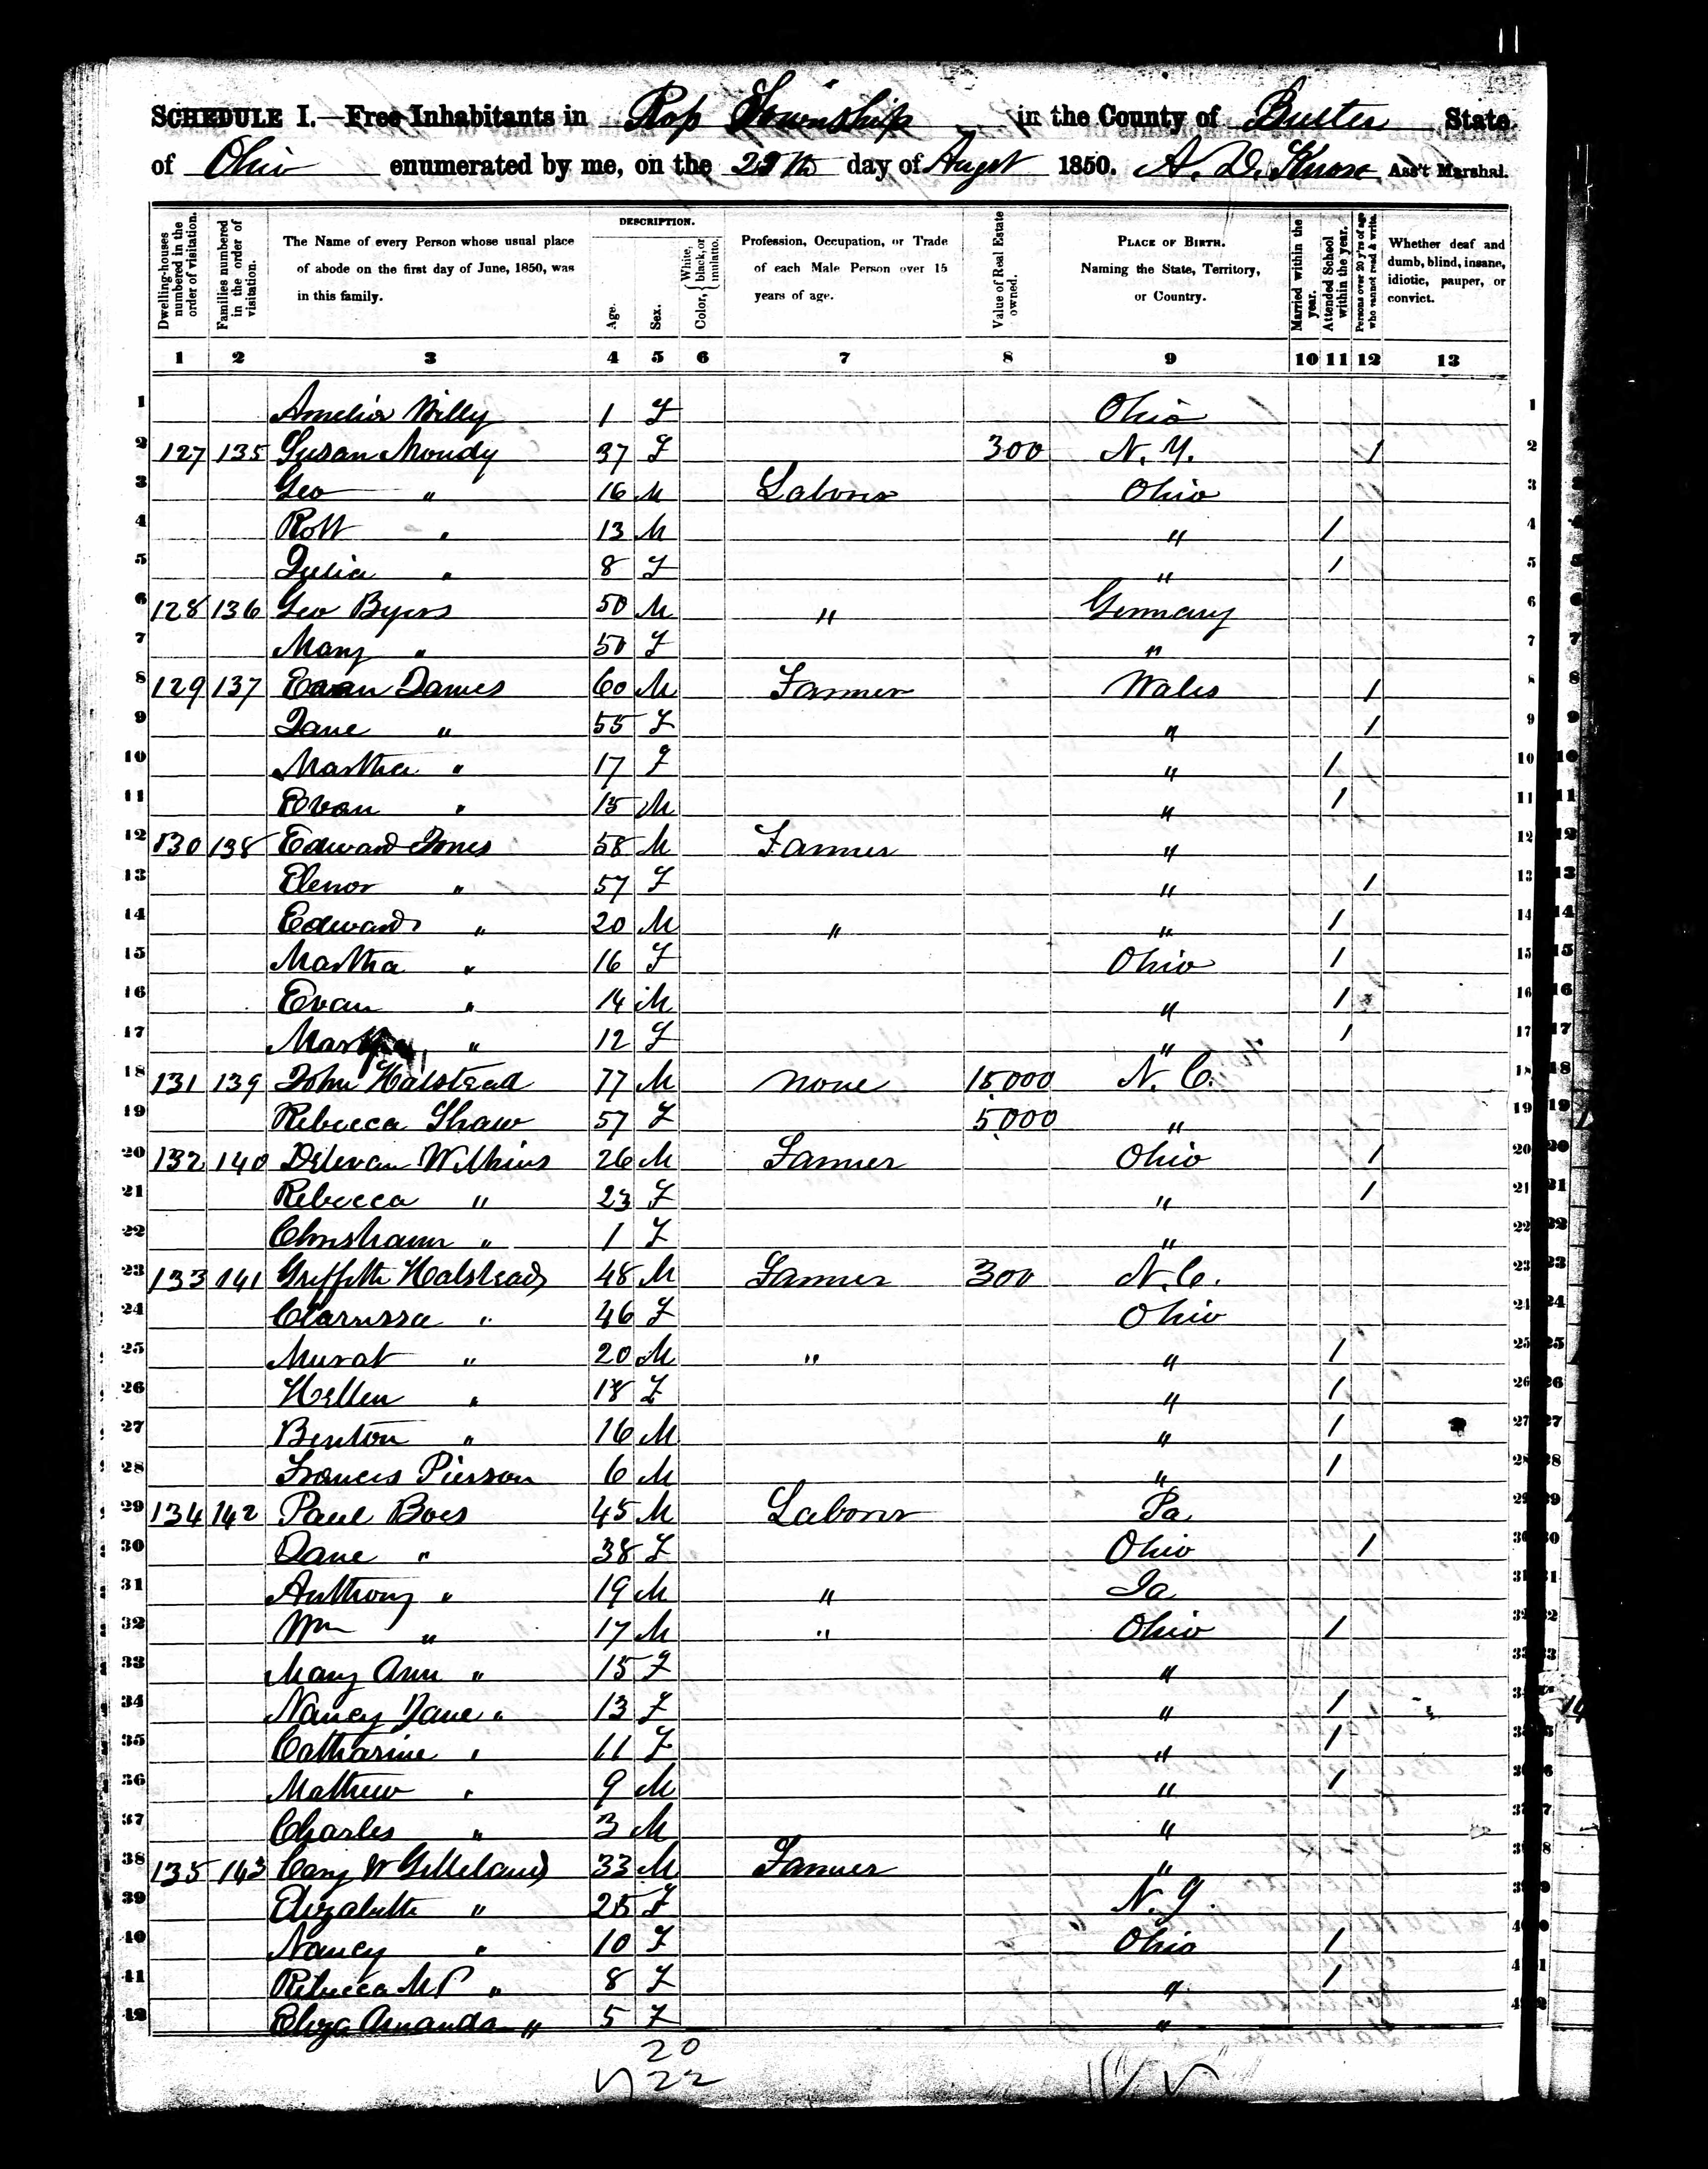 11
SCHEDULE I.—Free Inhabitants in Ross Township in the County of Butler State
of Ohio enumerated by me, on the 29th day of Augst 1850. A. D. Knox Ass't Marshal.
DESCRIPTION.
Dwelling-houses numbered in the order of visitation. Families numbered in the order of visitation. The Name of every Person whose usual place of abode on the first day of June, 1850, was in this family. Age. Sex. Color, White, black, or mulatto. Profession, Occupation, or Trade of each Male Person over 15 years of age. Value of Real Estate owned. PLACE OF BIRTH. Naming the State, Territory, or Country. Married within the year. Attended School within the year. Persons over 20 y'rs of age who cannot read & write. Whether deaf and dumb, blind, insane, idiotic, pauper, or convict.
1 2 3 4 5 6 7 8 9 10 11 12 13
1 Amelia Willy 1 F Ohio 1
2 127 135 Susan Moudy 37 F 300 N. Y. / 2
3 Geo " 16 M Laborer Ohio 3
4 Robt " 13 M " / 4
5 Julia " 8 F " / 5
6 128 136 Geo Byers 50 M " Germany 6
7 Mary " 50 F " 7
8 129 137 Evan Davies 60 M Farmer Wales / 8
9 Jane " 55 F " / 9
10 Martha " 17 F " / 10
11 Evan " 15 M " / 11
12 130 138 Edward Jones 58 M Farmer " 12
13 Elenor " 57 F " / 13
14 Edward " 20 M " " / 14
15 Martha " 16 F Ohio / 15
16 Evan " 14 M " / 16
17 " 12 F " / 17
18 131 139 John Halstead 77 M none 15,000 N. C. 18
19 Rebecca Shaw 57 F 5,000 " 19
20 132 140 Delevan Wilkins 26 M Farmer Ohio / 20
21 Rebecca " 23 F " / 21
22 " 1 F " 22
23 133 141 Griffith Halstead 48 M Farmer 300 N. C. 23
24 Clarissa " 46 F Ohio 24
25 Murat " 20 M " " / 25
26 Hellen " 18 F " / 26
27 Benton " 16 M " / 27
28 Frances Pierson 6 M " / 28
29 134 142 Paul Boes 45 M Laborer Pa 29
30 Jane " 38 F Ohio / 30
31 Anthony " 19 M " Ia 31
32 Wm " 17 M " Ohio / 32
33 Mary Ann " 15 F " 33
34 Nancy Jane " 13 F " / 34
35 Catharine " 11 F " / 35
36 Mathew " 9 M " / 36
37 Charles " 3 M " 37
38 135 143 Cary W Gilleland 33 M Farmer " 38
39 Elizabeth " 25 F N. J. 39
40 Nancy " 10 F Ohio / 40
41 Rebecca M P " 8 F " / 41
42 Eliza Amanda " 5 F " 42
20
22